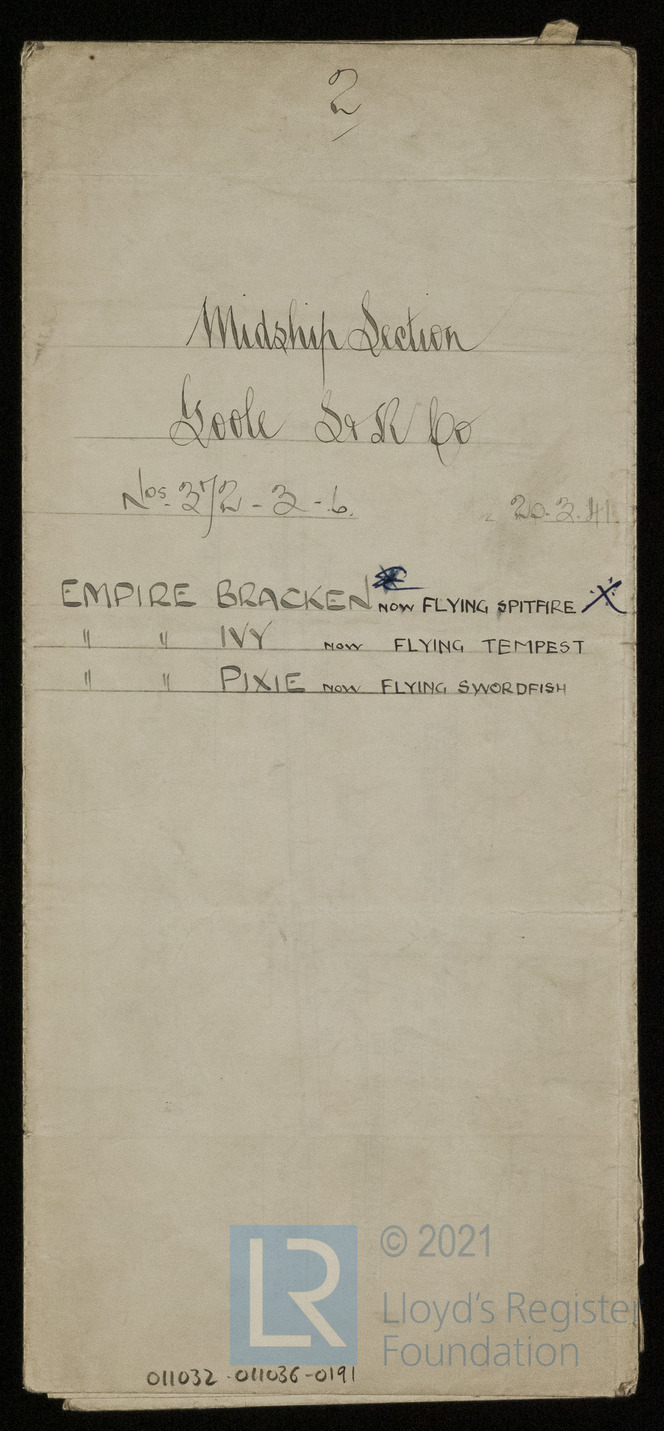 2
Midship Section
Goole S & R Co
Nos. 372 - 3 - 6.
20.3.41.
EMPIRE BRACKEN NOW FLYING SPITFIRE X
" " IVY NOW FLYING TEMPEST
" " PIXIE NOW FLYING SWORDFISH
LR
© 2021
Lloyd's Register
Foundation
011032-011036-0191